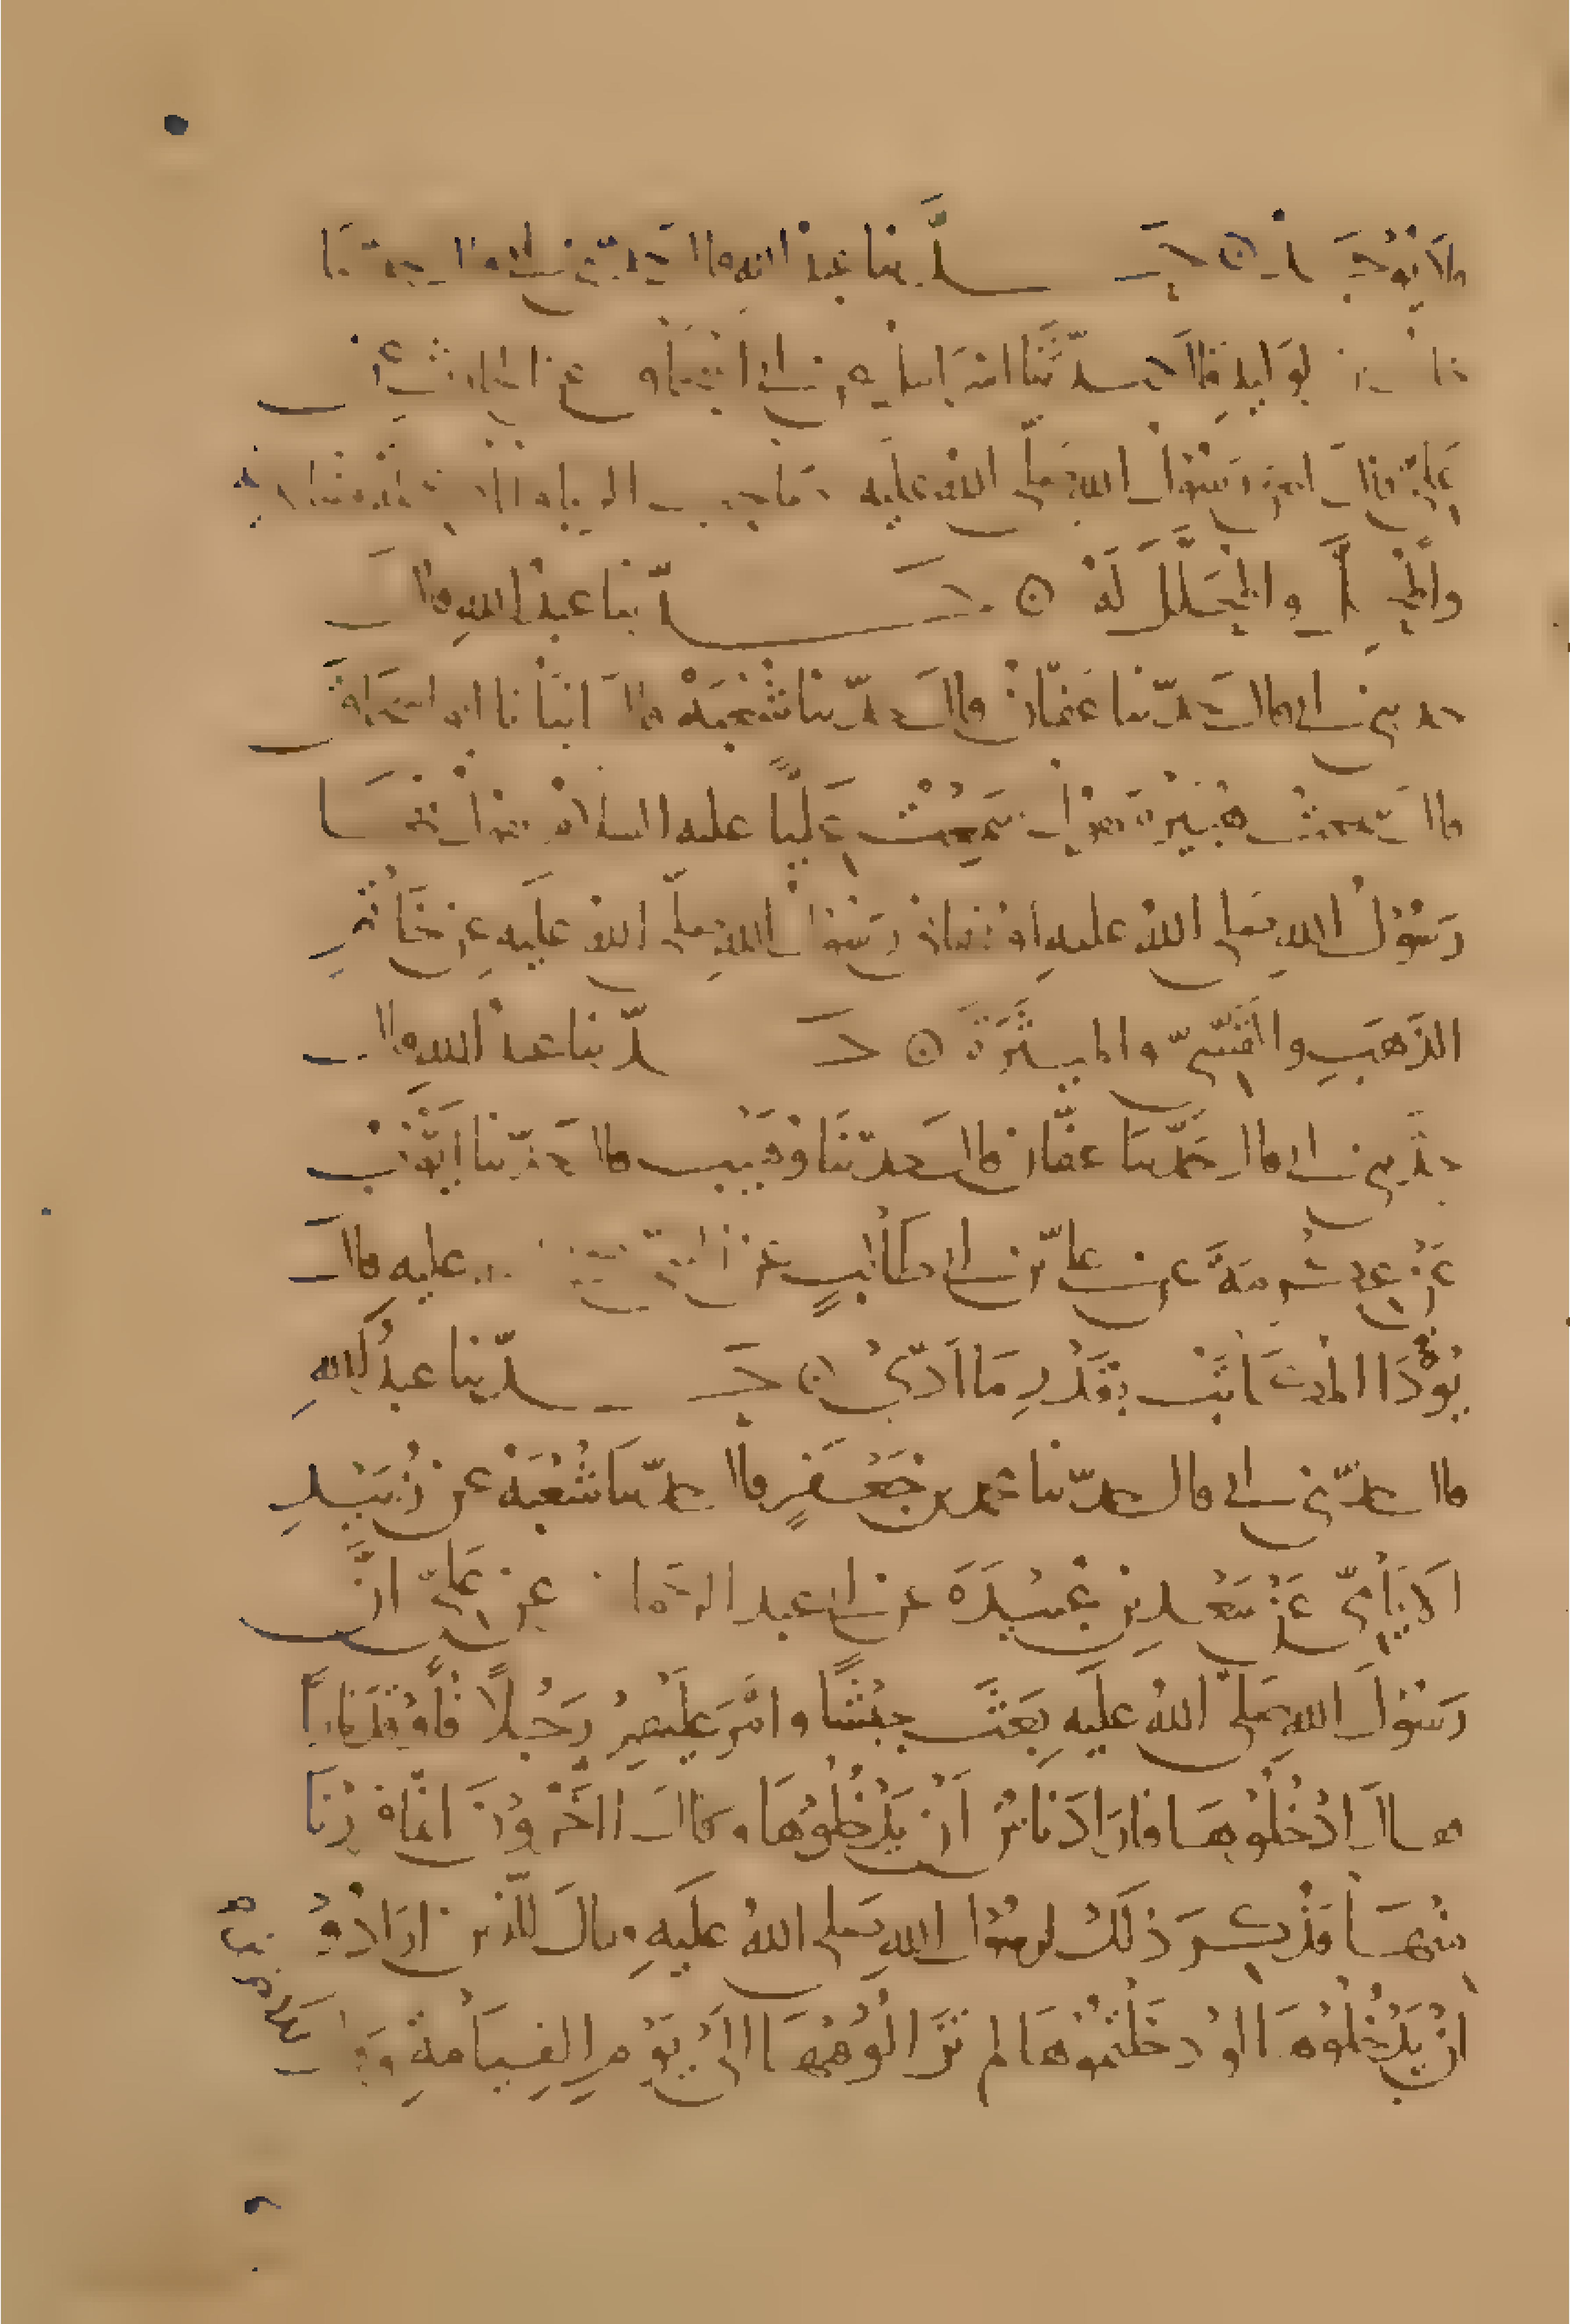 فلا يوجد ۞ حدثنا عبد الله قال حدثني ابي قال حدثنا
خلف بن الوليد قال حدثنا اسرايل عن ابي اسحاق عن الحارث عن
علي قال لعن رسول الله صلى الله عليه صاحب الربا وآكله وشاهديه
والمحل والمحلل له ۞ حدثنا عبد الله قال
حدثني ابي قال حدثنا عفان قال حدثنا شعبة قال انبانا ابو اسحاق
قال سمعت هبيرة يقول سمعت عليا عليه السلام يقول نهى
رسول الله صلى الله عليه او نهاني رسول الله صلى الله عليه عن خاتم
الذهب والقسي والميثرة ۞ حدثنا عبد الله قال
حدثني ابي قال حدثنا عفان قال حدثنا وهيب قال حدثنا ايوب
عن عكرمة عن علي بن ابي طالب عن النبي صلى الله عليه قال
يودا المكاتب بقدر ما ادى ۞ حدثنا عبد الله
قال حدثني ابي قال حدثنا محمد بن جعفر قال حدثنا شعبة عن زبيد
الايامي عن سعد بن عبيدة عن ابي عبد الرحمان عن علي ان
رسول الله صلى الله عليه بعث جيشا وامر عليهم رجلا فأوقد نارا
فقال ادخلوها فاراد ناس ان يدخلوها وقال الآخرون انما فررنا
منها فذكر ذلك لرسول الله صلى الله عليه وقال للذين ارادوا
ان يدخلوها لو دخلتموها لم تزالوا فيها الى يوم القيامة وقال